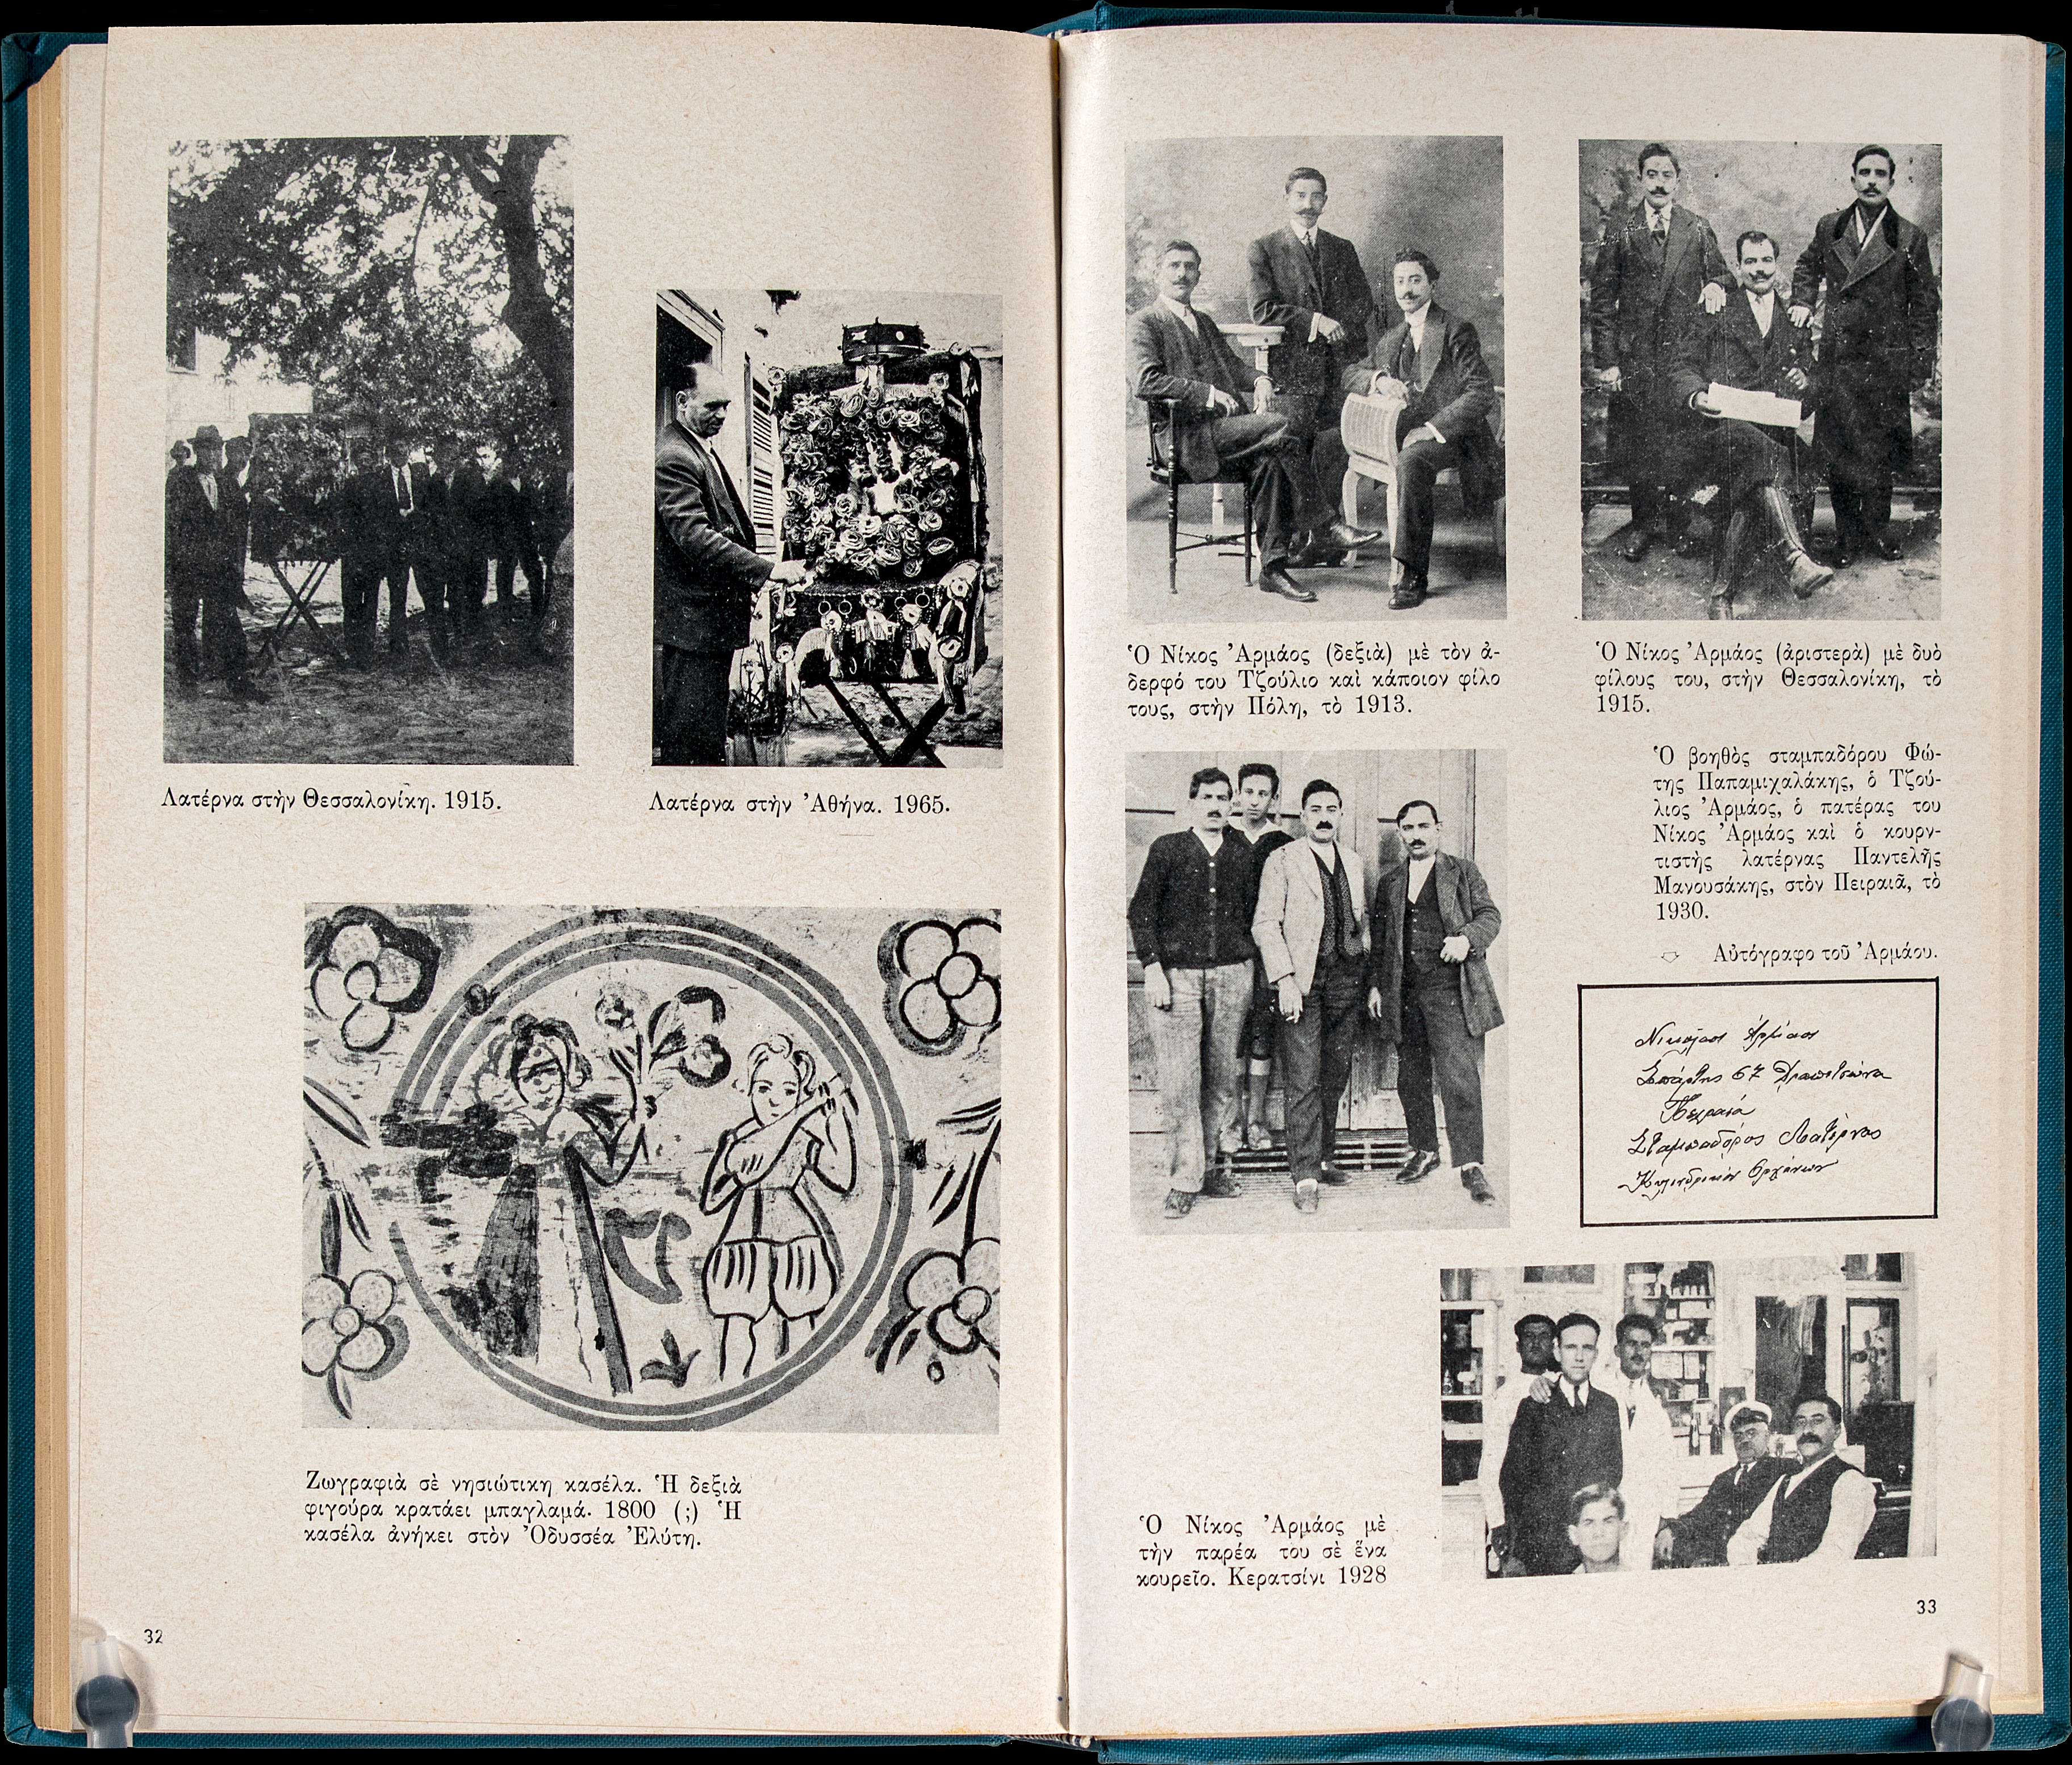 Λατέρνα στὴν Θεσσαλονίκη. 1915.
Λατέρνα στὴν Ἀθήνα. 1965.
Ζωγραφιὰ σὲ νησιώτικη κασέλα. Ἡ δεξιὰ
φιγούρα κρατάει μπαγλαμά. 1800 (;) Ἡ
κασέλα ἀνήκει στὸν Ὀδυσσέα Ἐλύτη.
32
Ὁ Νίκος Ἀρμάος (δεξιὰ) μὲ τὸν ἀ-
δερφό του Τζούλιο καὶ κάποιον φίλο
τους, στὴν Πόλη, τὸ 1913.
Ὁ Νίκος Ἀρμάος (ἀριστερὰ) μὲ δυὸ
φίλους του, στὴν Θεσσαλονίκη, τὸ
1915.
Ὁ βοηθὸς σταμπαδόρου Φώ-
της Παπαμιχαλάκης, ὁ Τζού-
λιος Ἀρμάος, ὁ πατέρας του
Νίκος Ἀρμάος καὶ ὁ κουρν-
τιστὴς λατέρνας Παντελῆς
Μανουσάκης, στὸν Πειραιᾶ, τὸ
1930.
Αὐτόγραφο τοῦ Ἀρμάου.
Νικόλαος Ἀρμάος
Σπάρτης 67 Δραπετσώνα
Πειραιά
Σταμπαδόρος Λατέρνας
Κυλινδρικών Οργάνων
Ὁ Νίκος Ἀρμάος μὲ
τὴν παρέα του σὲ ἕνα
κουρεῖο. Κερατσίνι 1928
33